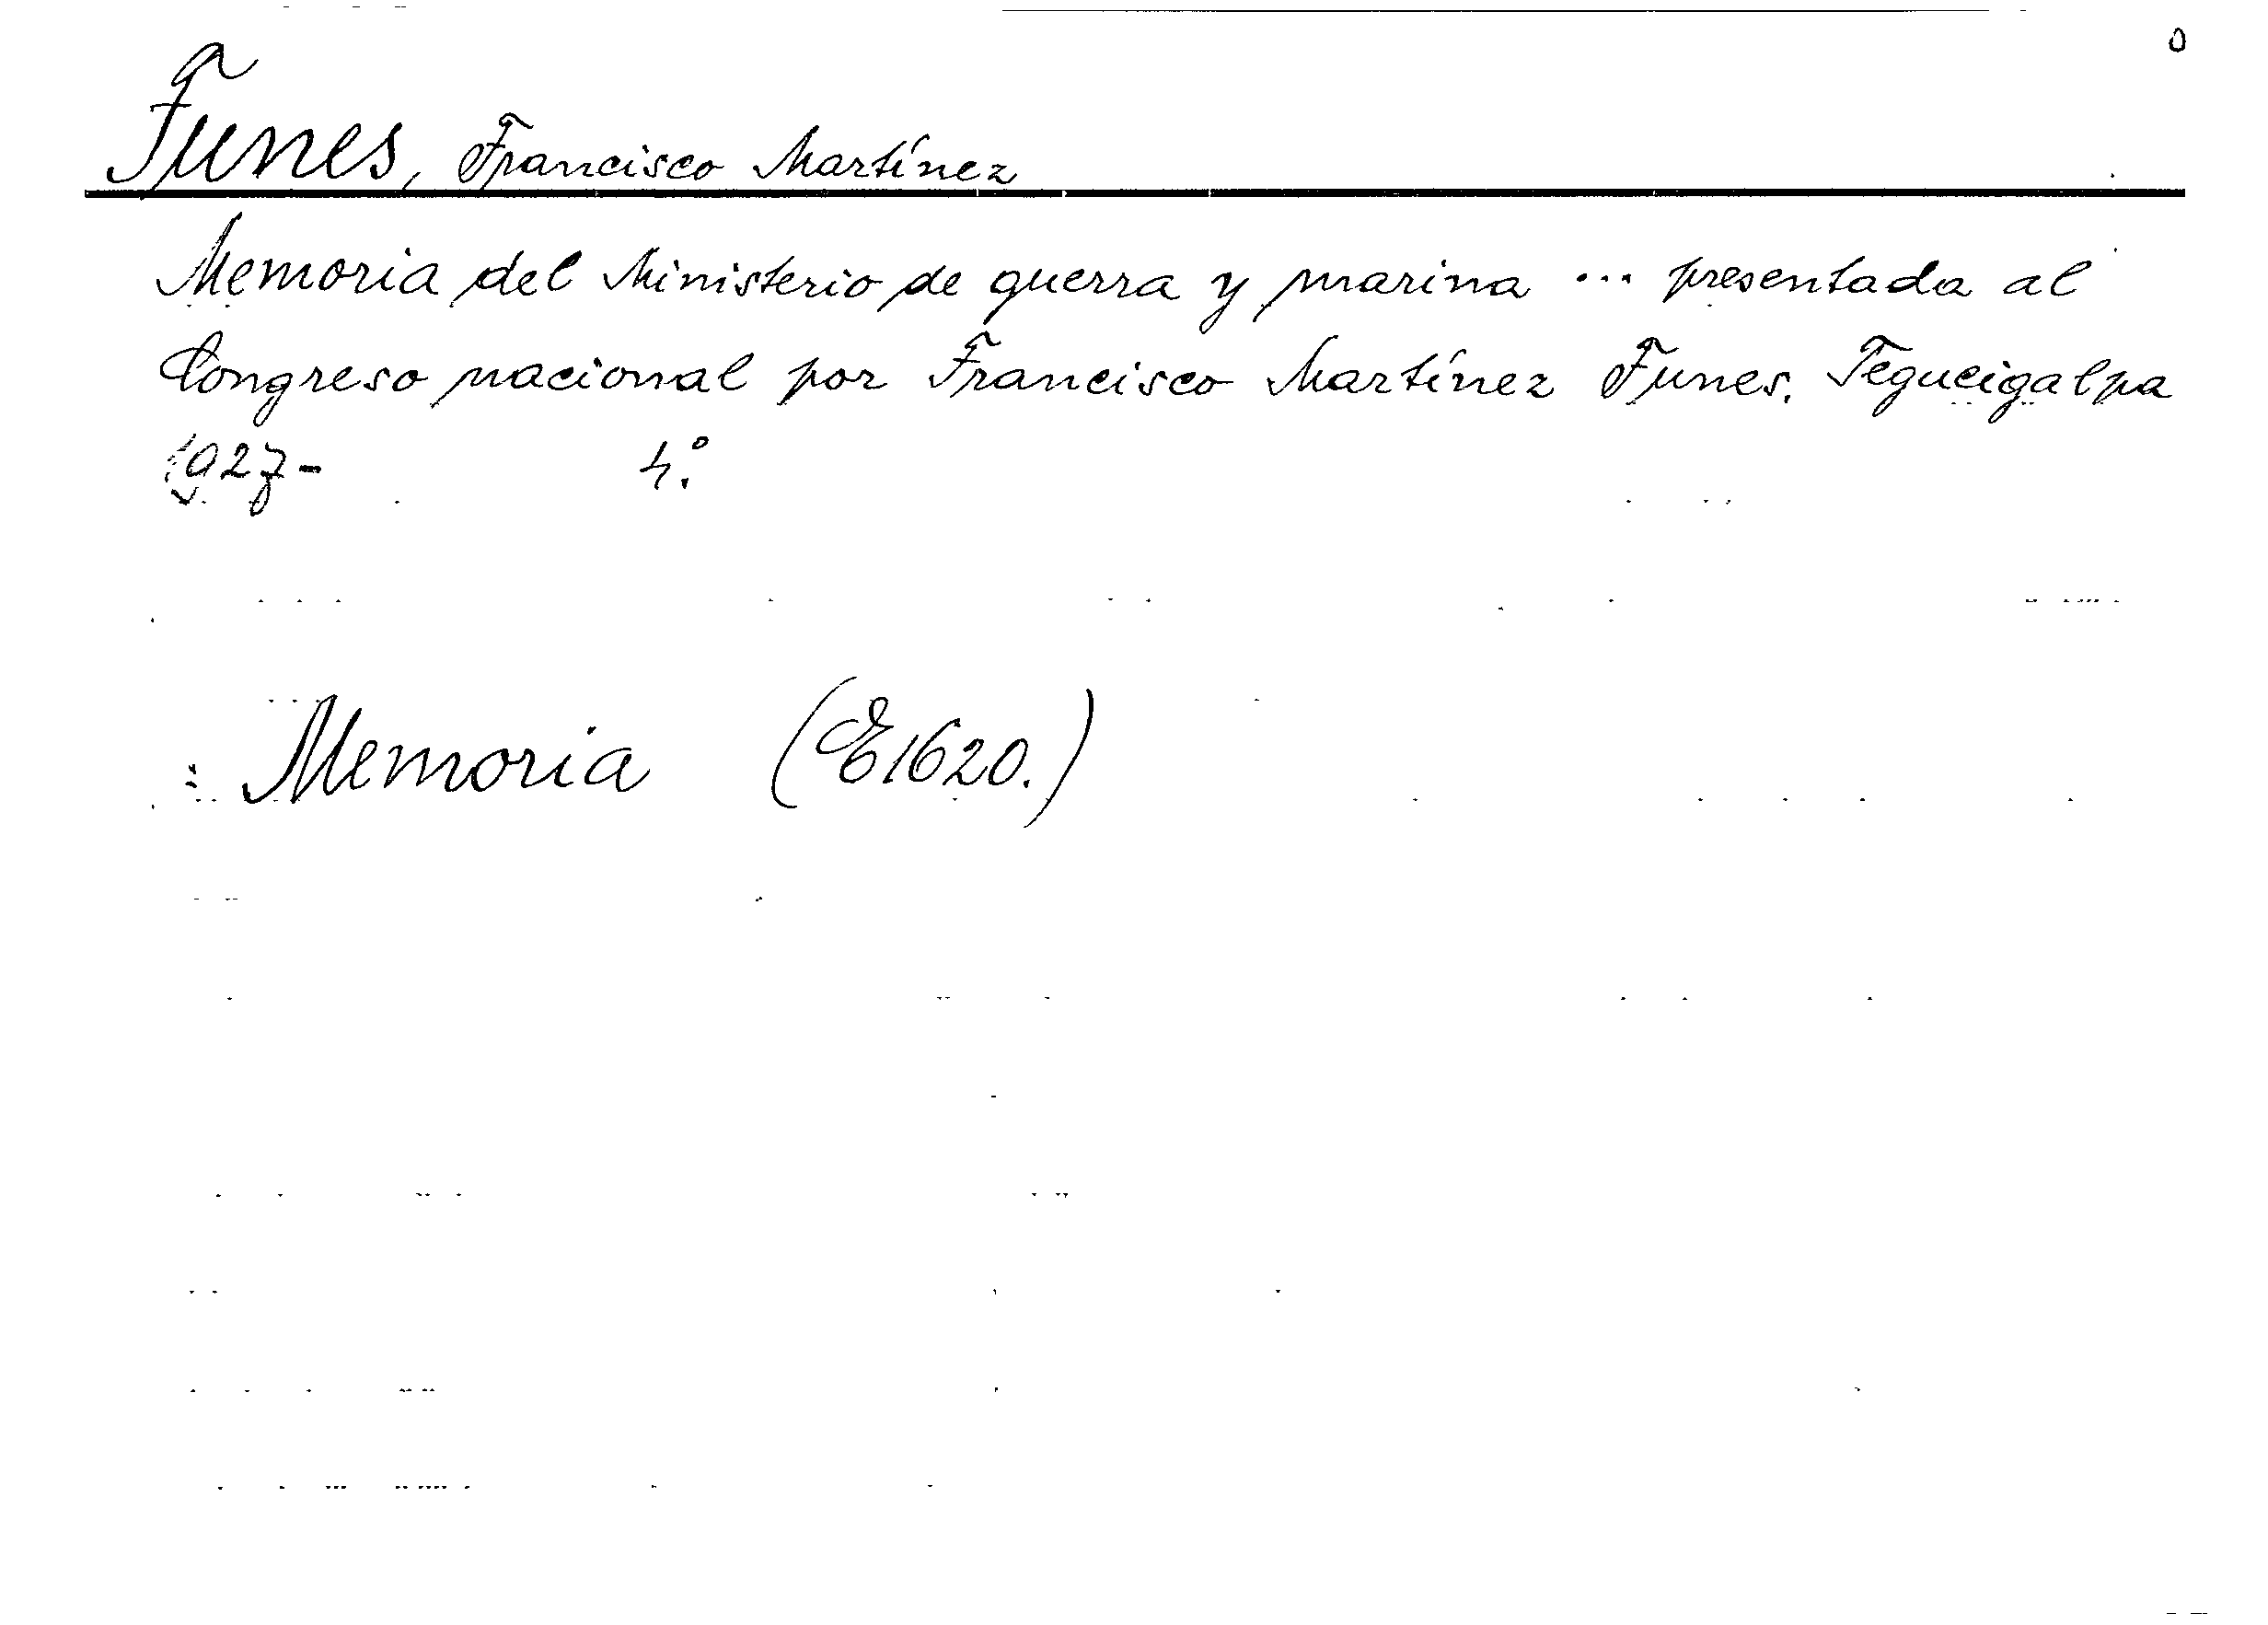 Funes, Francisco Martínez
Memoria del Ministerio de guerra y marina ... presentada al
Congreso nacional por Francisco Martínez Funes. Tegucigalpa
1927- 4:o
: Memoria (E1620.)